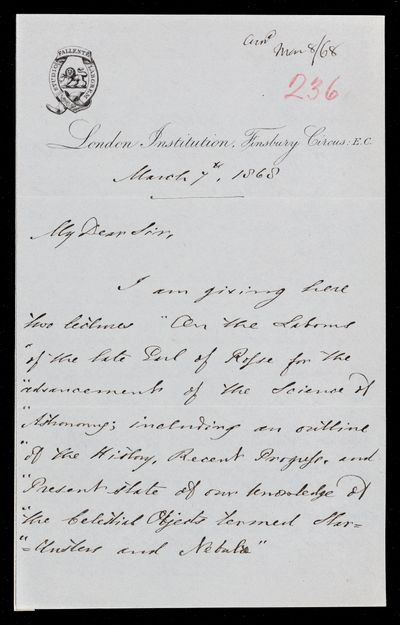 Mar 8/68
236
STUDIO FALLENTE LABOREM
London Institution, Finsbury Circus: E.C.
March 7th, 1868
My Dear Sir,
I am giving here
two lectures "On the Labours
"of the late Earl of Rosse for the
"advancement of the Science of
"Astronomy; including an outline
"of the History, Recent Progress, and
"Present state of our knowledge of
"the Celestial Objects termed Star-
"-Clusters and Nebulæ"